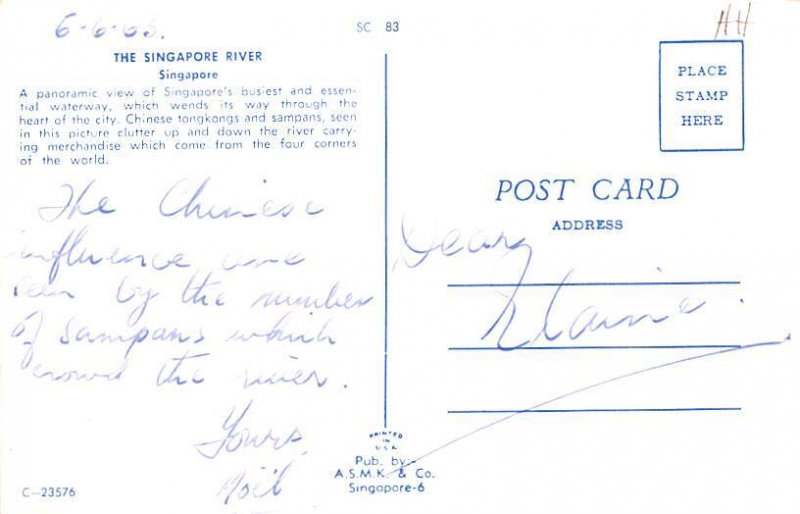 6-6-63.
SC 83
HH
THE SINGAPORE RIVER
Singapore
A panoramic view of Singapore's busiest and essen-
tial waterway, which wends its way through the
heart of the city. Chinese tongkongs and sampans, seen
in this picture clutter up and down the river carry-
ing merchandise which come from the four corners
of the world.
The Chinese
influence are
seen by the number
of sampans which
crowd the river.
Yours,
Noel
C-23576
PRINTED
IN
U.S.A.
Pub. by:-
A.S.M.K. & Co.
Singapore-6
PLACE
STAMP
HERE
POST CARD
ADDRESS
Dear
Elaine.